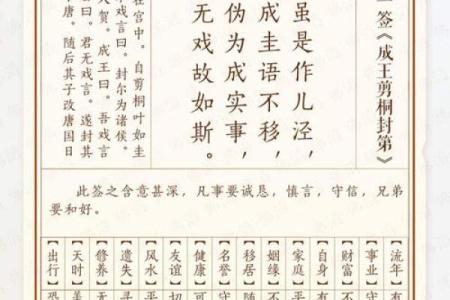 签《成王剪桐封第》
虽是作儿泾，
成圭语不移，
伪为成实事，
无戏故如斯。
在宫中。自剪桐叶如圭
戏言曰。封尔为诸侯。
人贺。成王曰。吾戏言
曰。君无戏言。遂封其
唐。随后其子改唐国日
此签之含意甚深，凡事要诚恳，慎言，守信，兄弟
要和好。
【流年】
【事业】有
【财富】不
【自身】有
【家庭】平
【姻缘】不
【移居】随
【名誉】守
【健康】可
【友谊】切
【风水】平
【遗失】寻
【修养】无
【天时】美
【出行】恐